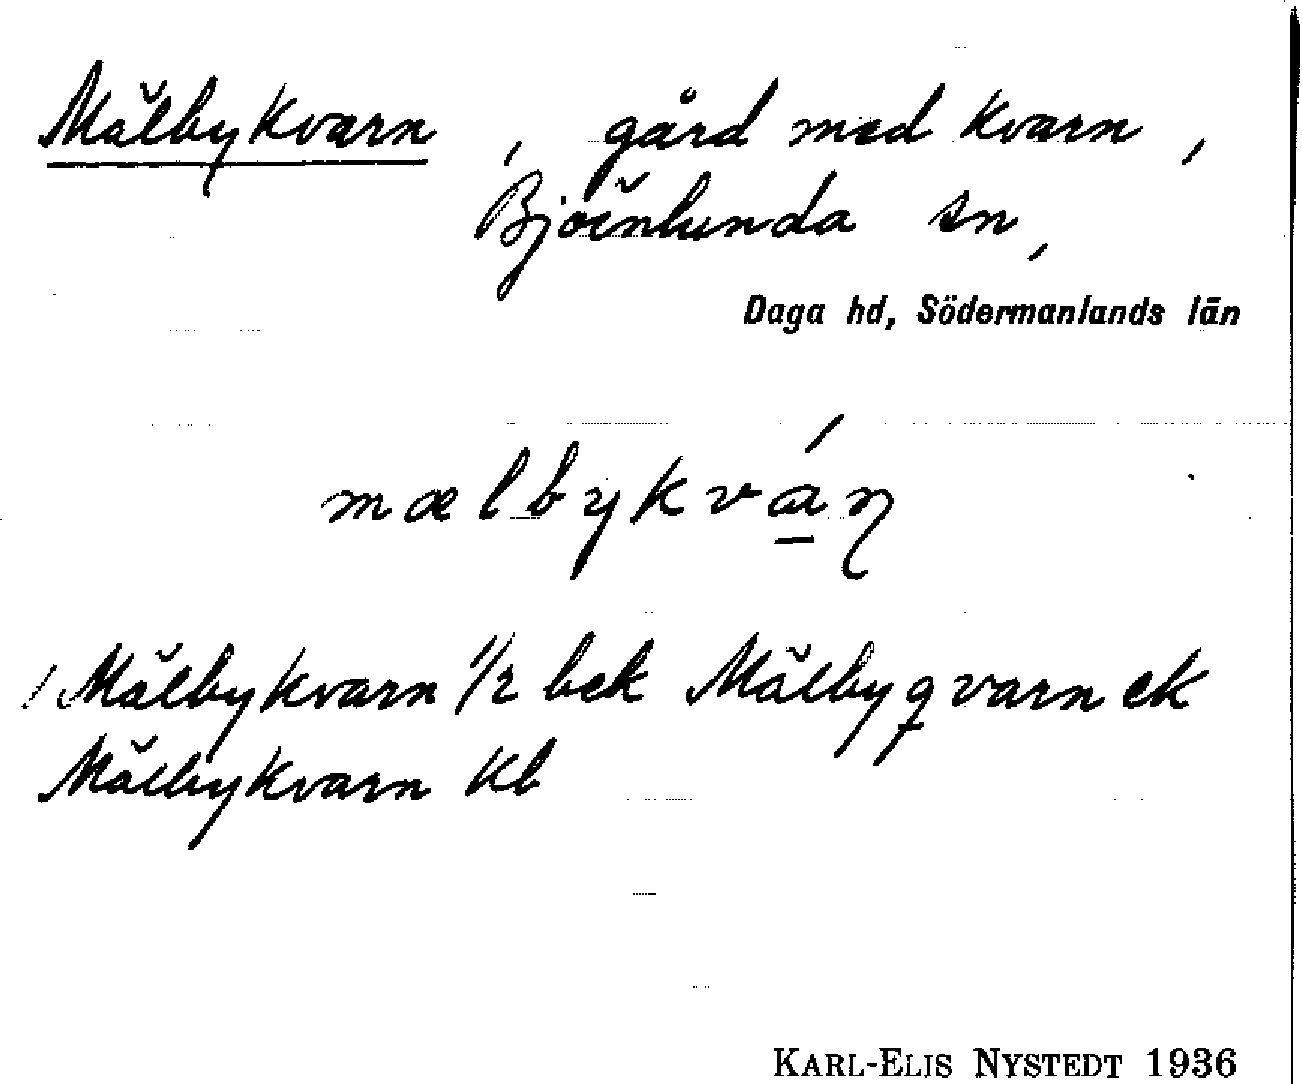 Mälbykvarn, gård med kvarn,
Björnlunda sn,
Daga hd, Södermanlands län
mælbykvá̱ɳ
Mälbykvarn 1/2 bek Mälbyqvarn ek
Mälbykvarn kb
KARL-ELIS NYSTEDT 1936